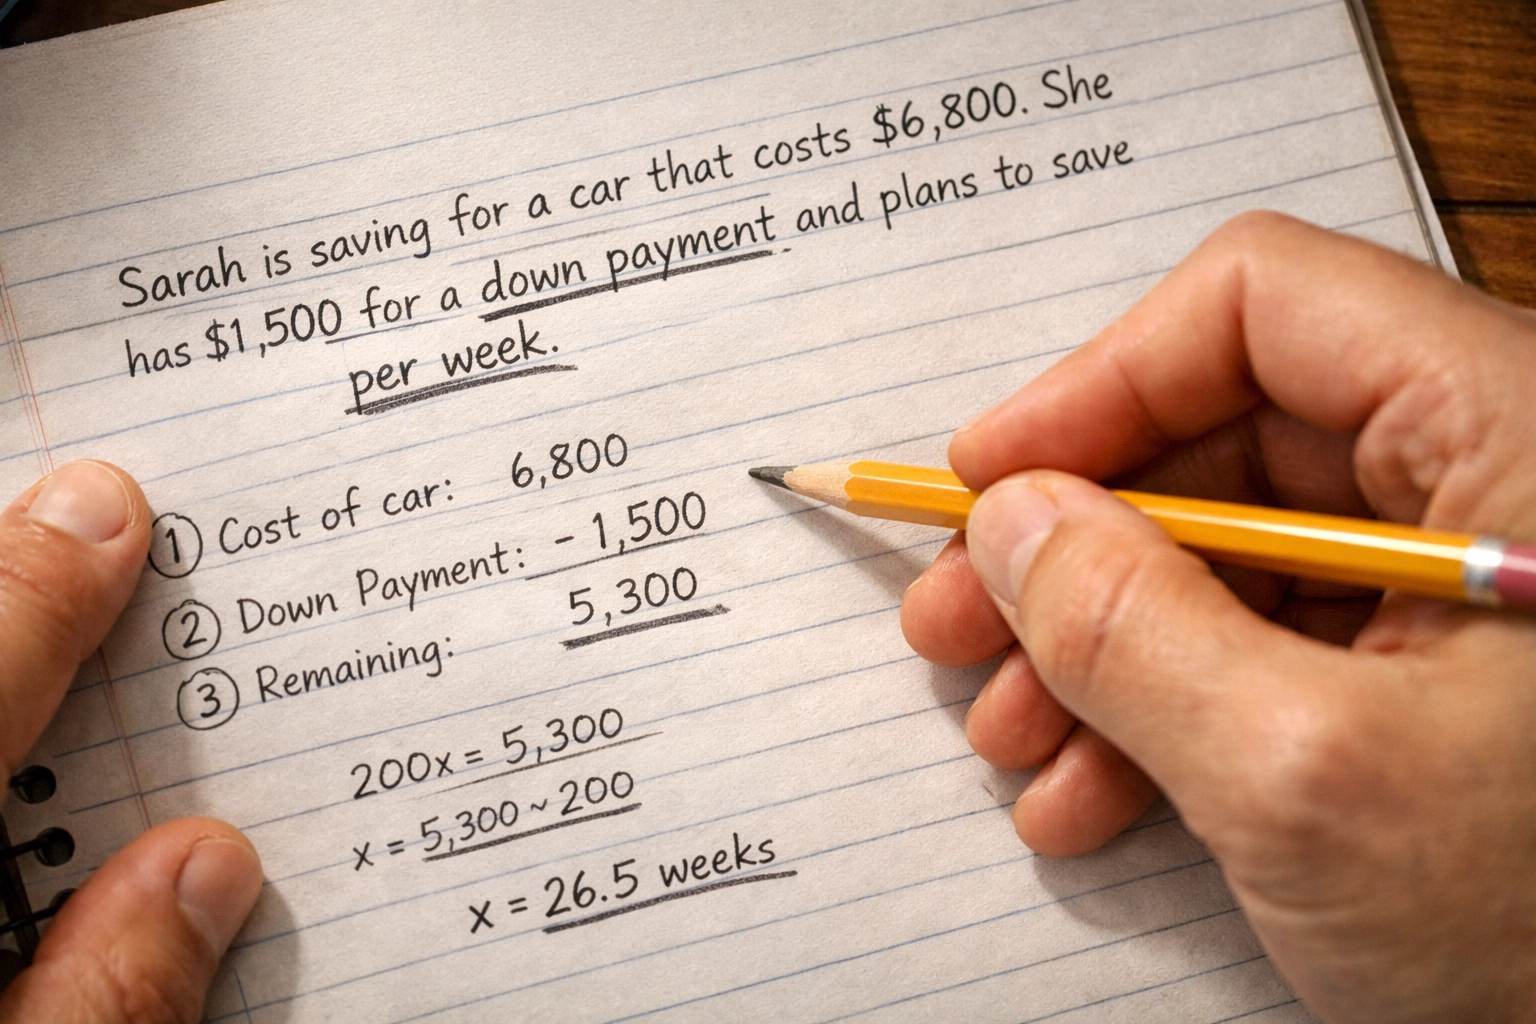 Sarah is saving for a car that costs $6,800. She
has $1,500 for a down payment and plans to save
per week.
① Cost of car: 6,800
② Down Payment: - 1,500
③ Remaining: 5,300
200x = 5,300
x = 5,300 ~ 200
x = 26.5 weeks